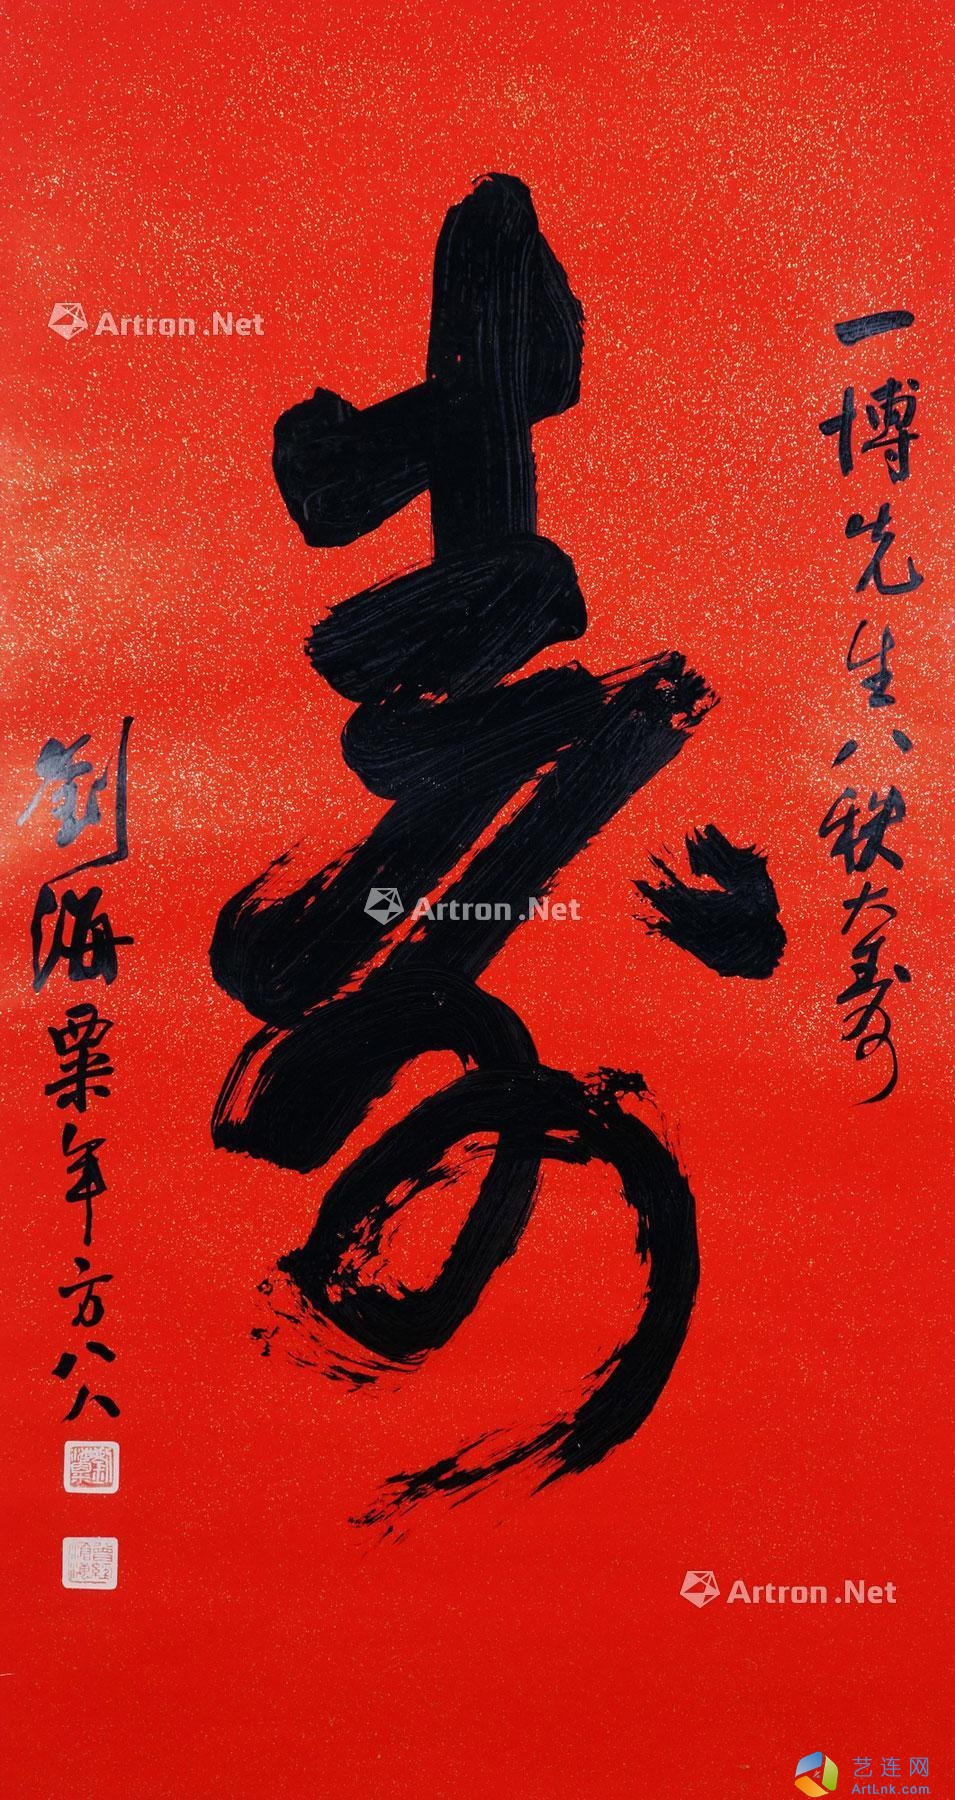 一博先生八秩大寿
寿
劉海粟年方八八
劉海粟
曾經滄海
Artron.Net
Artron.Net
Artron.Net
艺连网
ArtLnk.com